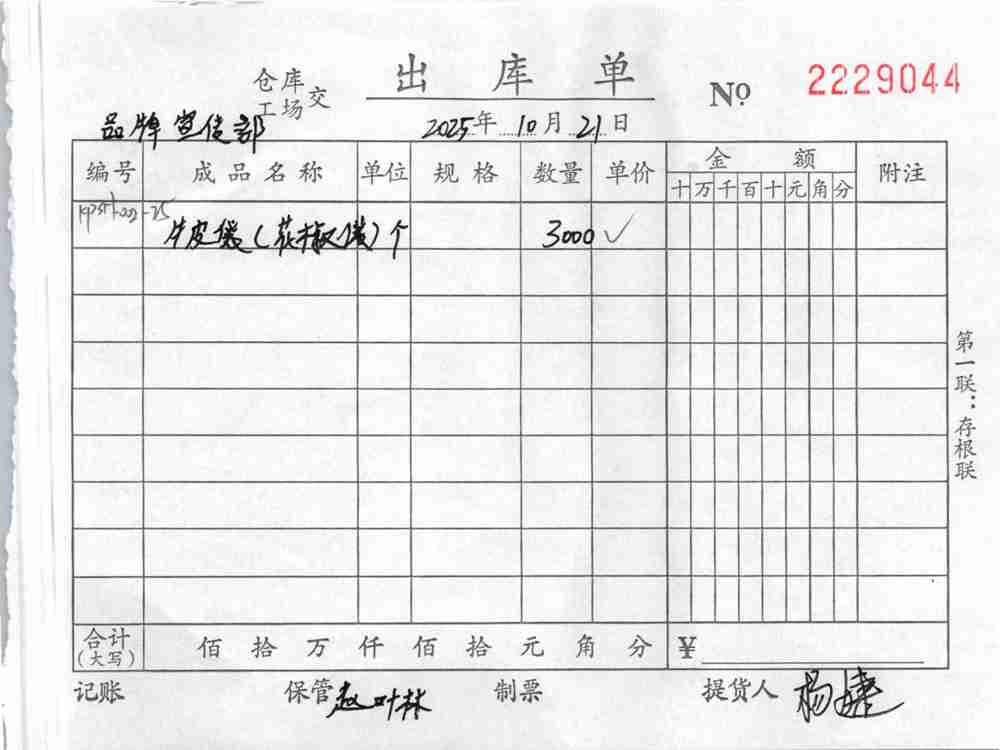 仓库
工场 交 出库单 Nº 2229044
品牌宣传部 2025年10月21日
编号 成品名称 单位 规格 数量 单价 金额 附注
十万千百十元角分
牛皮袋(花椒袋) 个 3000 ✓
第一联：存根联
合计(大写) 佰拾万仟佰拾元角分 ¥
记账 保管 赵叶林 制票 提货人 杨婕